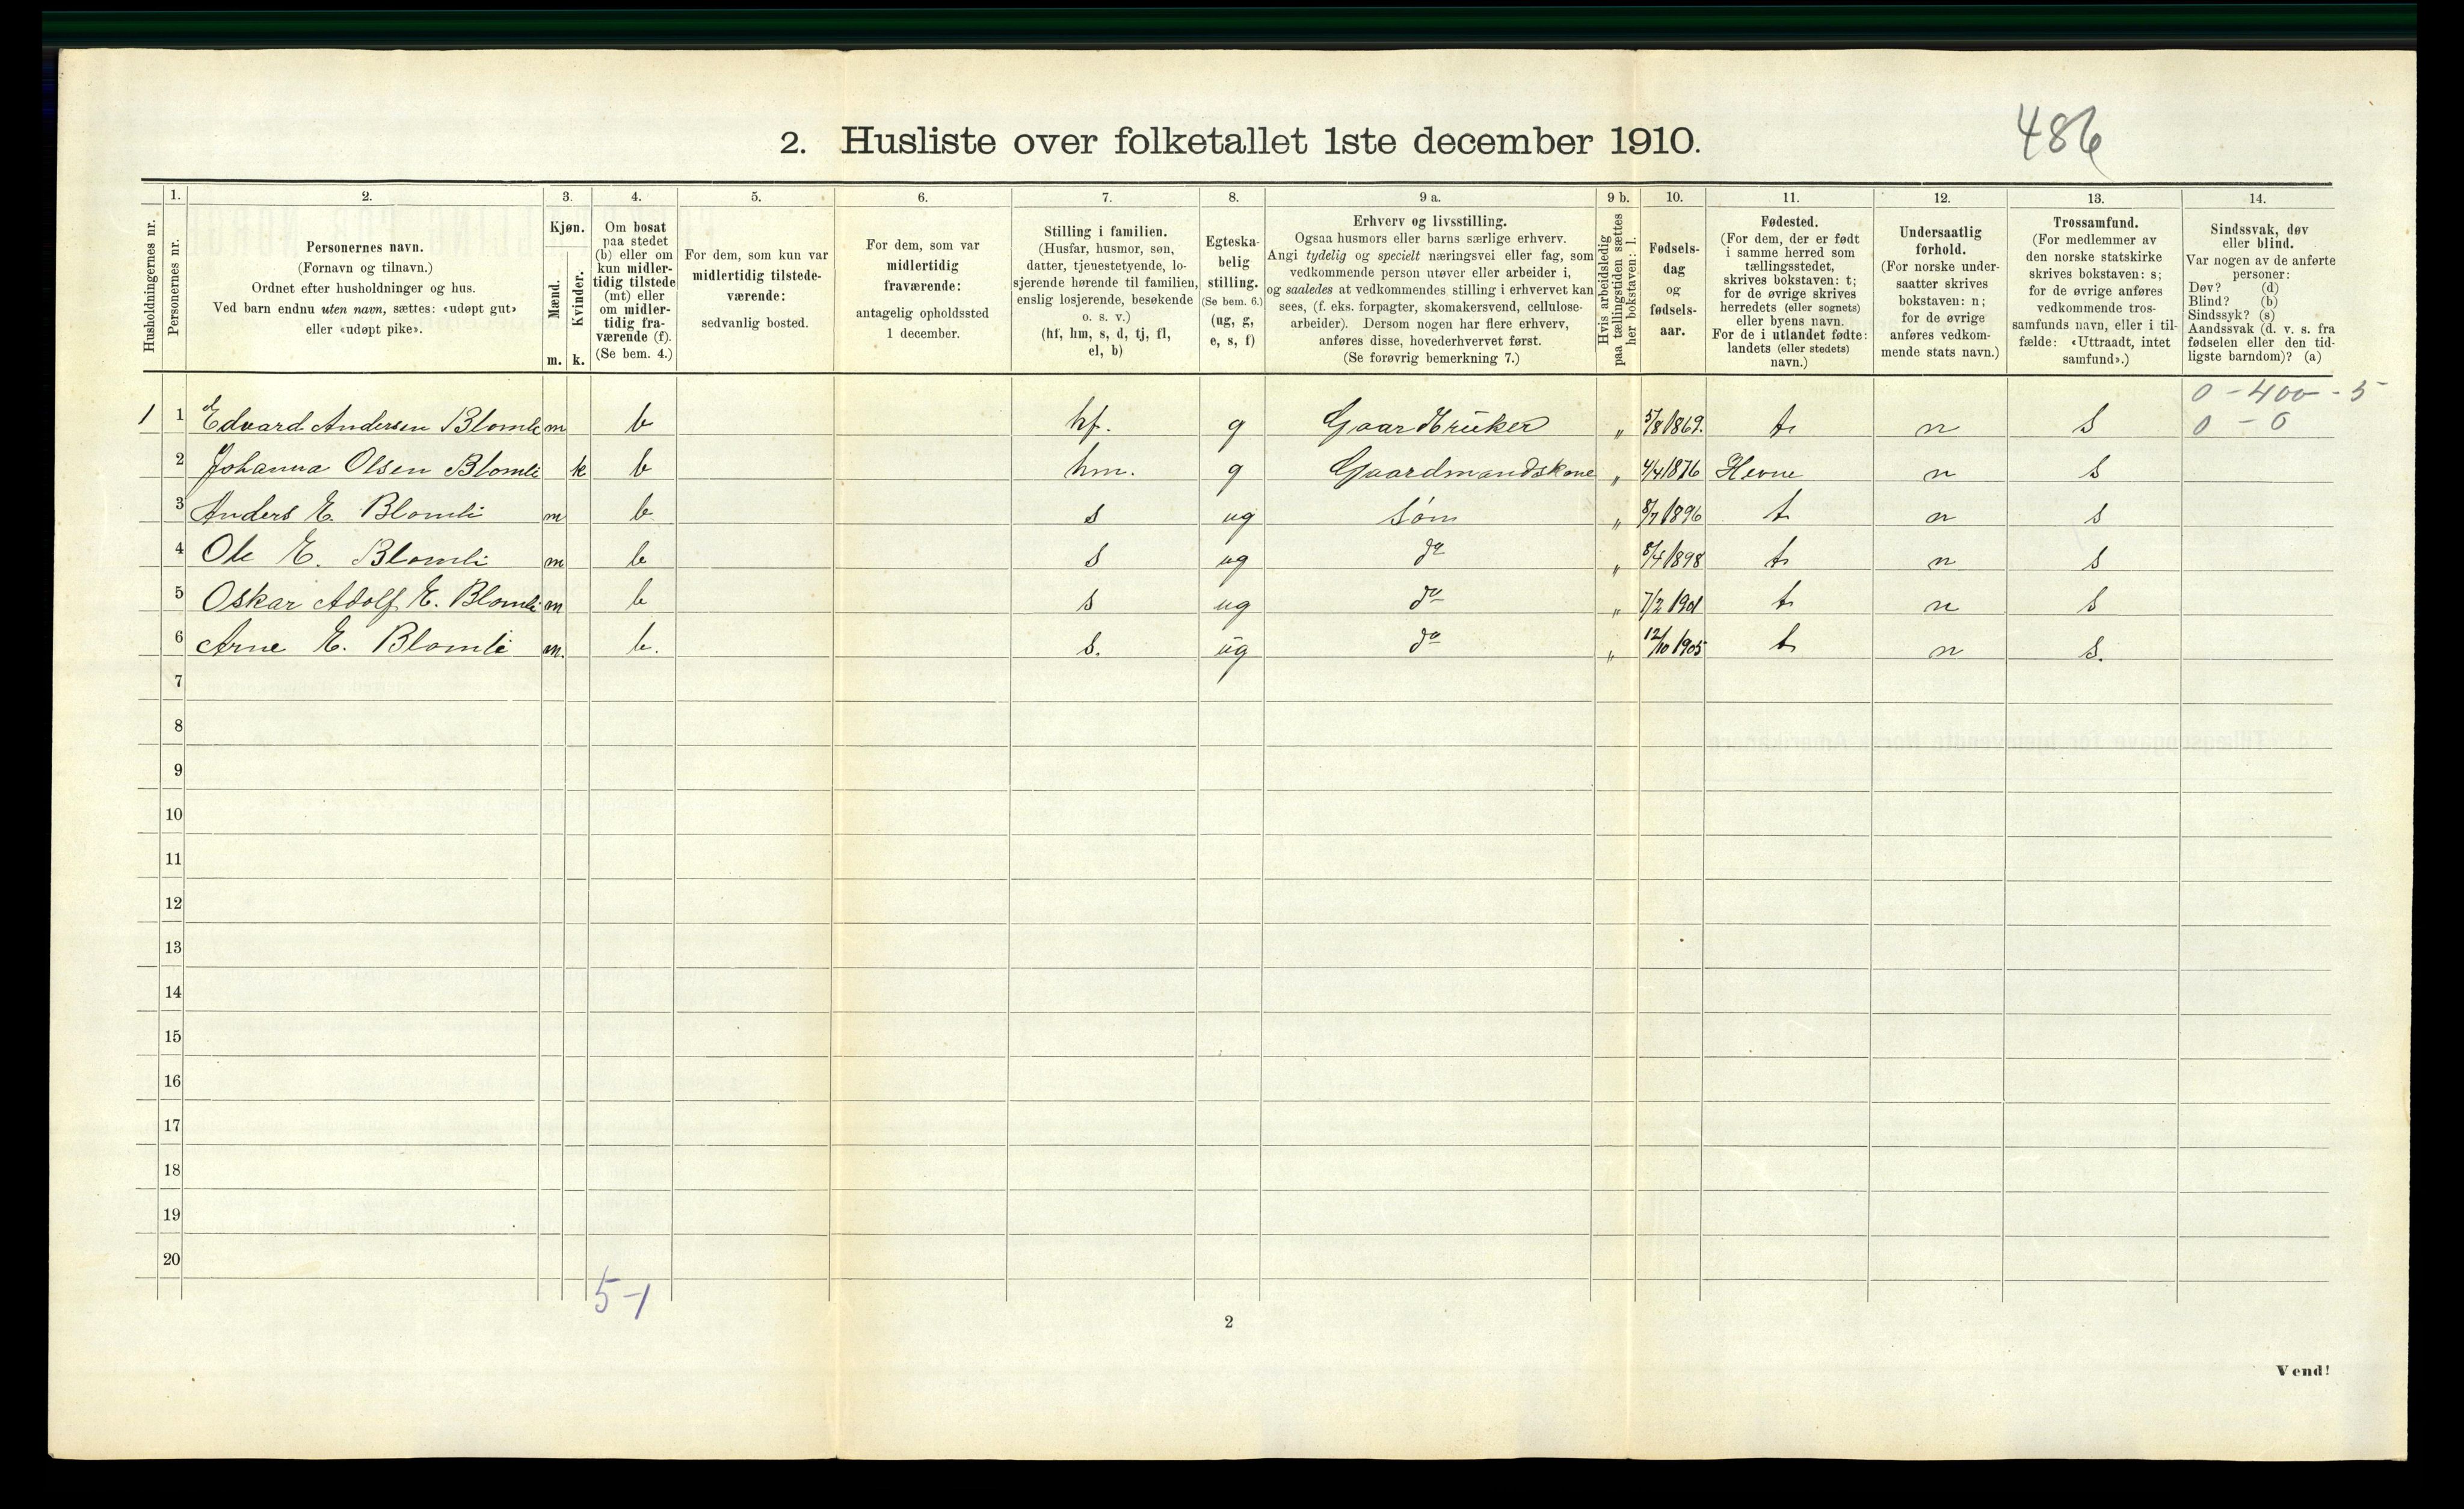 486
2. Husliste over folketallet 1ste december 1910.
1. 2. 3. 4. 5. 6. 7. 8. 9 a. 9 b. 10. 11. 12. 13. 14.
Husholdningernes nr.
Personernes nr.
Personernes navn.
(Fornavn og tilnavn.)
Ordnet efter husholdninger og hus.
Ved barn endnu uten navn, sættes: «udøpt gut»
eller «udøpt pike».
Kjøn.
Mænd.
Kvinder.
m. k.
Om bosat
paa stedet
(b) eller om
kun midler-
tidig tilstede
(mt) eller
om midler-
tidig fra-
værende (f).
(Se bem. 4.)
For dem, som kun var
midlertidig tilstede-
værende:
sedvanlig bosted.
For dem, som var
midlertidig
fraværende:
antagelig opholdssted
1 december.
Stilling i familien.
(Husfar, husmor, søn,
datter, tjenestetyende, lo-
sjerende hørende til familien,
enslig losjerende, besøkende
o. s. v.)
(hf, hm, s, d, tj, fl,
el, b)
Egteska-
belig
stilling.
(Se bem. 6.)
(ug, g,
e, s, f)
Erhverv og livsstilling.
Ogsaa husmors eller barns særlige erhverv.
Angi tydelig og specielt næringsvei eller fag, som
vedkommende person utøver eller arbeider i,
og saaledes at vedkommendes stilling i erhvervet kan
sees, (f. eks. forpagter, skomakersvend, cellulose-
arbeider). Dersom nogen har flere erhverv,
anføres disse, hovederhvervet først.
(Se forøvrig bemerkning 7.)
Hvis arbeidsledig
paa tællingstiden sættes
her bokstaven: l.
Fødsels-
dag
og
fødsels-
aar.
Fødested.
(For dem, der er født
i samme herred som
tællingsstedet,
skrives bokstaven: t;
for de øvrige skrives
herredets (eller sognets)
eller byens navn.
For de i utlandet fødte:
landets (eller stedets)
navn.)
Undersaatlig
forhold.
(For norske under-
saatter skrives
bokstaven: n;
for de øvrige
anføres vedkom-
mende stats navn.)
Trossamfund.
(For medlemmer av
den norske statskirke
skrives bokstaven: s;
for de øvrige anføres
vedkommende tros-
samfunds navn, eller i til-
fælde: «Uttraadt, intet
samfund».)
Sindssvak, døv
eller blind.
Var nogen av de anførte
personer:
Døv? (d)
Blind? (b)
Sindssyk? (s)
Aandssvak (d. v. s. fra
fødselen eller den tid-
ligste barndom)? (a)
0 - 400 - 5
1 1 Edvard Andersen Blomli m b hf. g Gaardbrüker „ 5/8 1869. t n s 0 - 0
2 Johanna Olsen Blomli k b hm. g Gaardmandskone „ 4/4 1876 Hevne n s
3 Anders E. Blomli m b s ug Søn „ 8/7 1896 t n s
4 Ole E. Blomli m b s ug do „ 8/4 1898 t n s
5 Oskar Adolf E. Blomli m b s ug do „ 7/2 1901 t n s
6 Arne E. Blomli m. b. s. ug do „ 12/10 1905 t n s.
7
8
9
10
11
12
13
14
15
16
17
18
19
20
5-1
2
Vend!